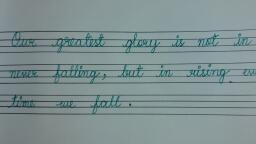 Our greatest glory is not in
never falling, but in rising
time we fall.